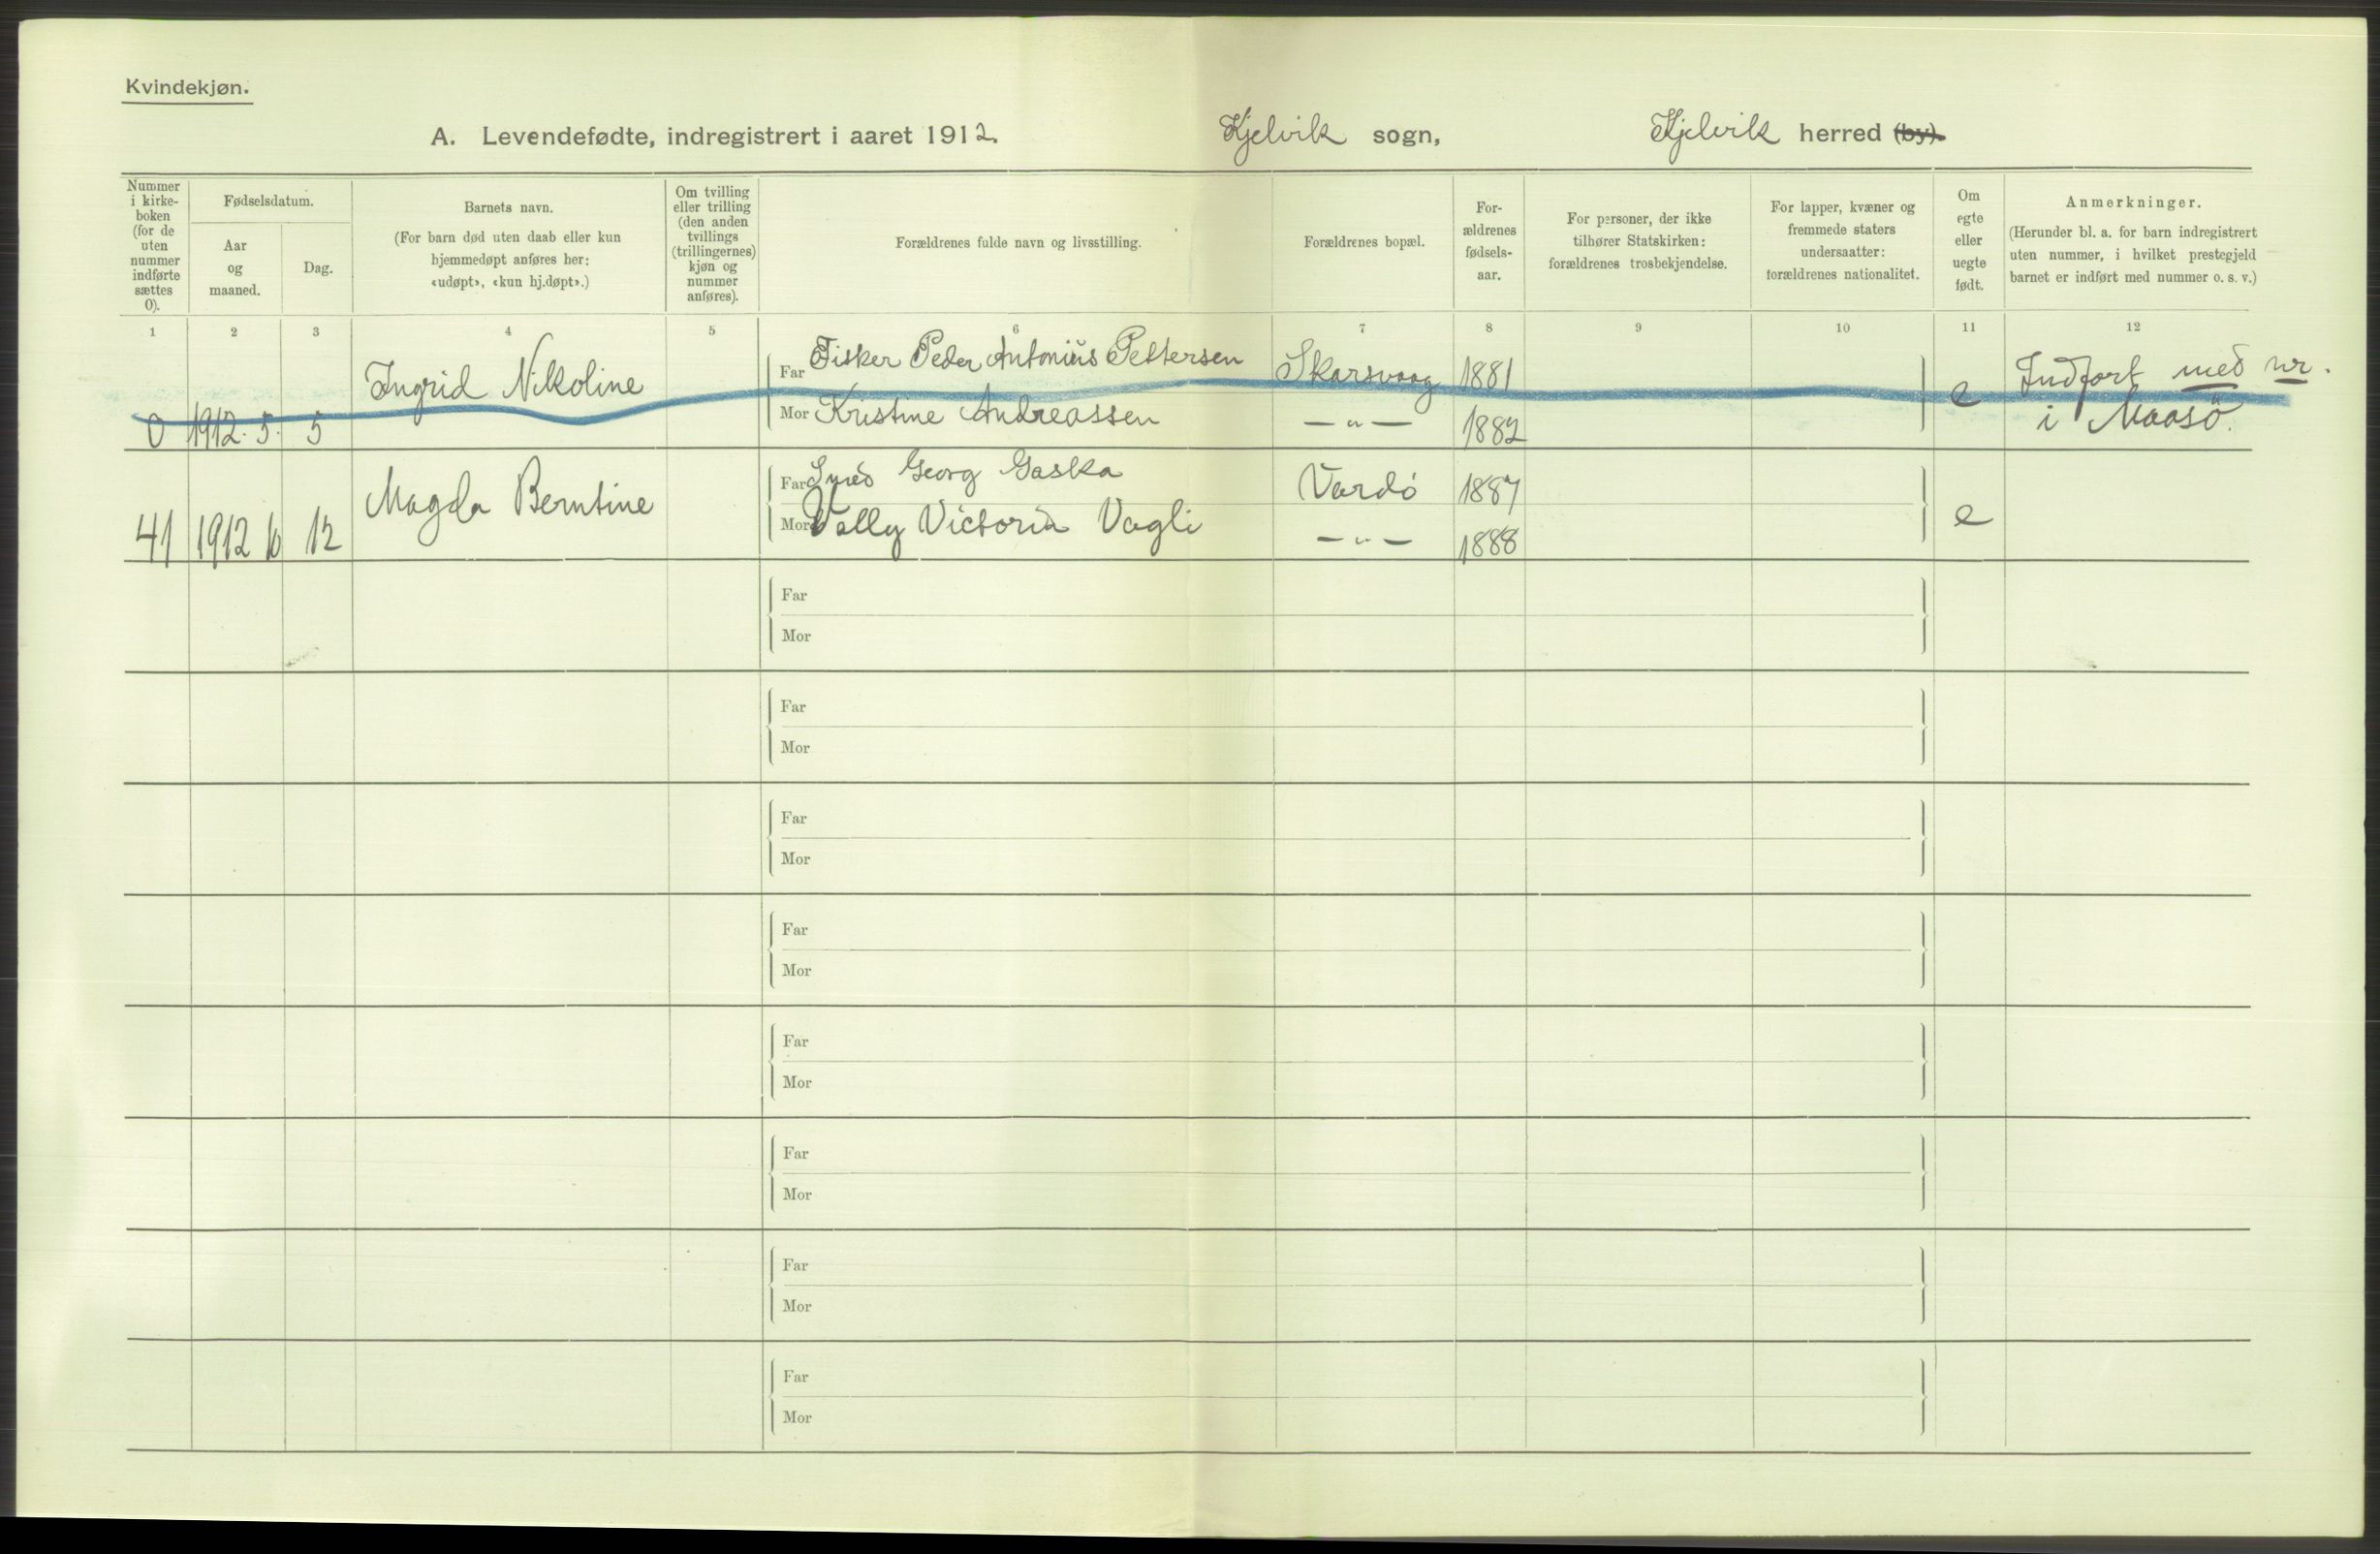 Kvindekjøn.
A. Levendefødte, indregistrert i aaret 1912. Kjelvik sogn, Kjelvik herred (by).
Nummer i kirke- boken (for de uten nummer indførte sættes 0).
Fødselsdatum.
Aar og maaned.
Dag.
Barnets navn.
(For barn død uten daab eller kun hjemmedøpt anføres her: «udøpt», «kun hj.døpt».)
Om tvilling eller trilling (den anden tvillings (trillingernes) kjøn og nummer anføres).
Forældrenes fulde navn og livsstilling.
Forældrenes bopæl.
For- ældrenes fødsels- aar.
For personer, der ikke tilhører Statskirken: forældrenes trosbekjendelse.
For lapper, kvæner og fremmede staters undersaatter: forældrenes nationalitet.
Om egte eller uegte født.
Anmerkninger.
(Herunder bl. a. for barn indregistrert uten nummer, i hvilket prestegjeld barnet er indført med nummer o. s. v.)
1 2 3 4 5 6 7 8 9 10 11 12
Ingrid Nikoline Far Fisker Peder Antonius Pettersen Skarsvaag 1881 e Indført med nr.
0 1912. 5. 5 Mor Kristine Andreassen — „ — 1882 i Maasö.
Magda Berntine Far Georg Gaska Vardö 1887 e
41 1912 12 Mor Valły Victoria Vagli — „ — 1888
Far
Mor
Far
Mor
Far
Mor
Far
Mor
Far
Mor
Far
Mor
Far
Mor
Far
Mor